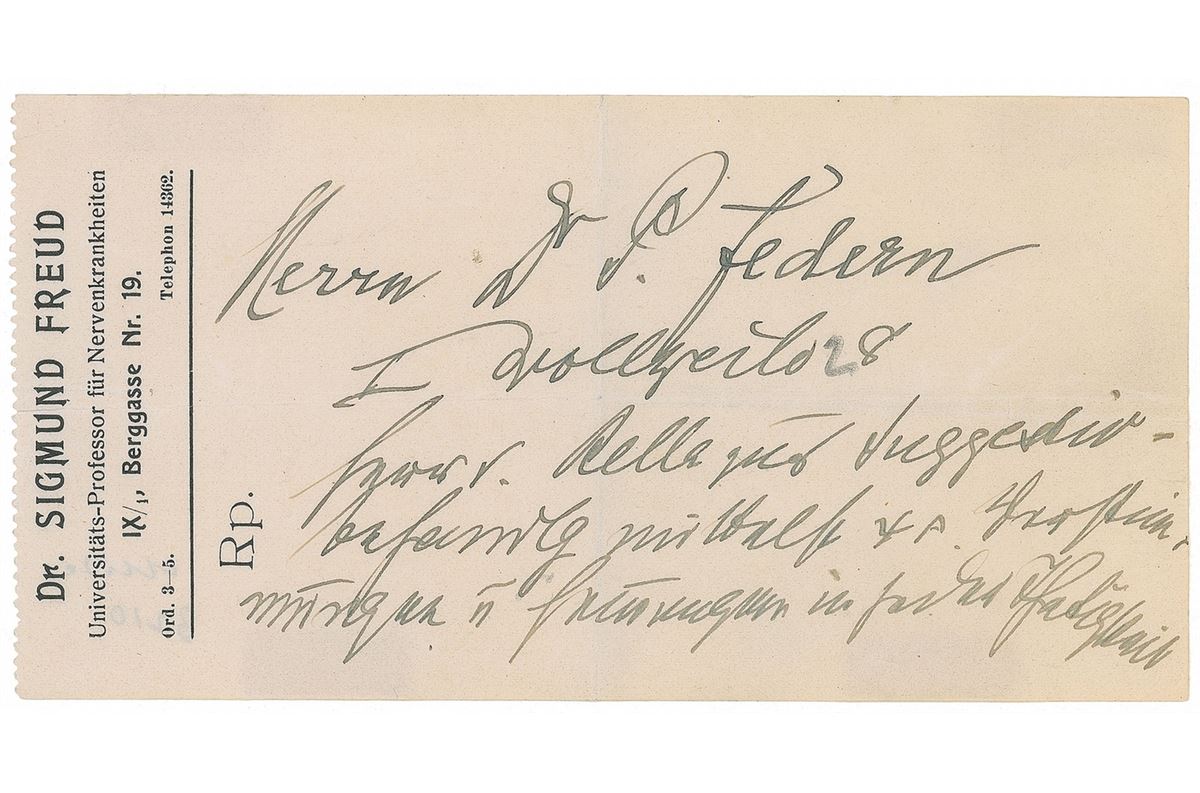 Dr. SIGMUND FREUD
Universitäts-Professor für Nervenkrankheiten
IX/1, Berggasse Nr. 19.
Ord. 3–5. Telephon 14362.
Rp.
Herrn Dr P. Federn
I Wollzeile 28
zur Suggestiv-
behandlg mittelst Verstim-
mungen u Hemmungen in jeder Thätigkeit